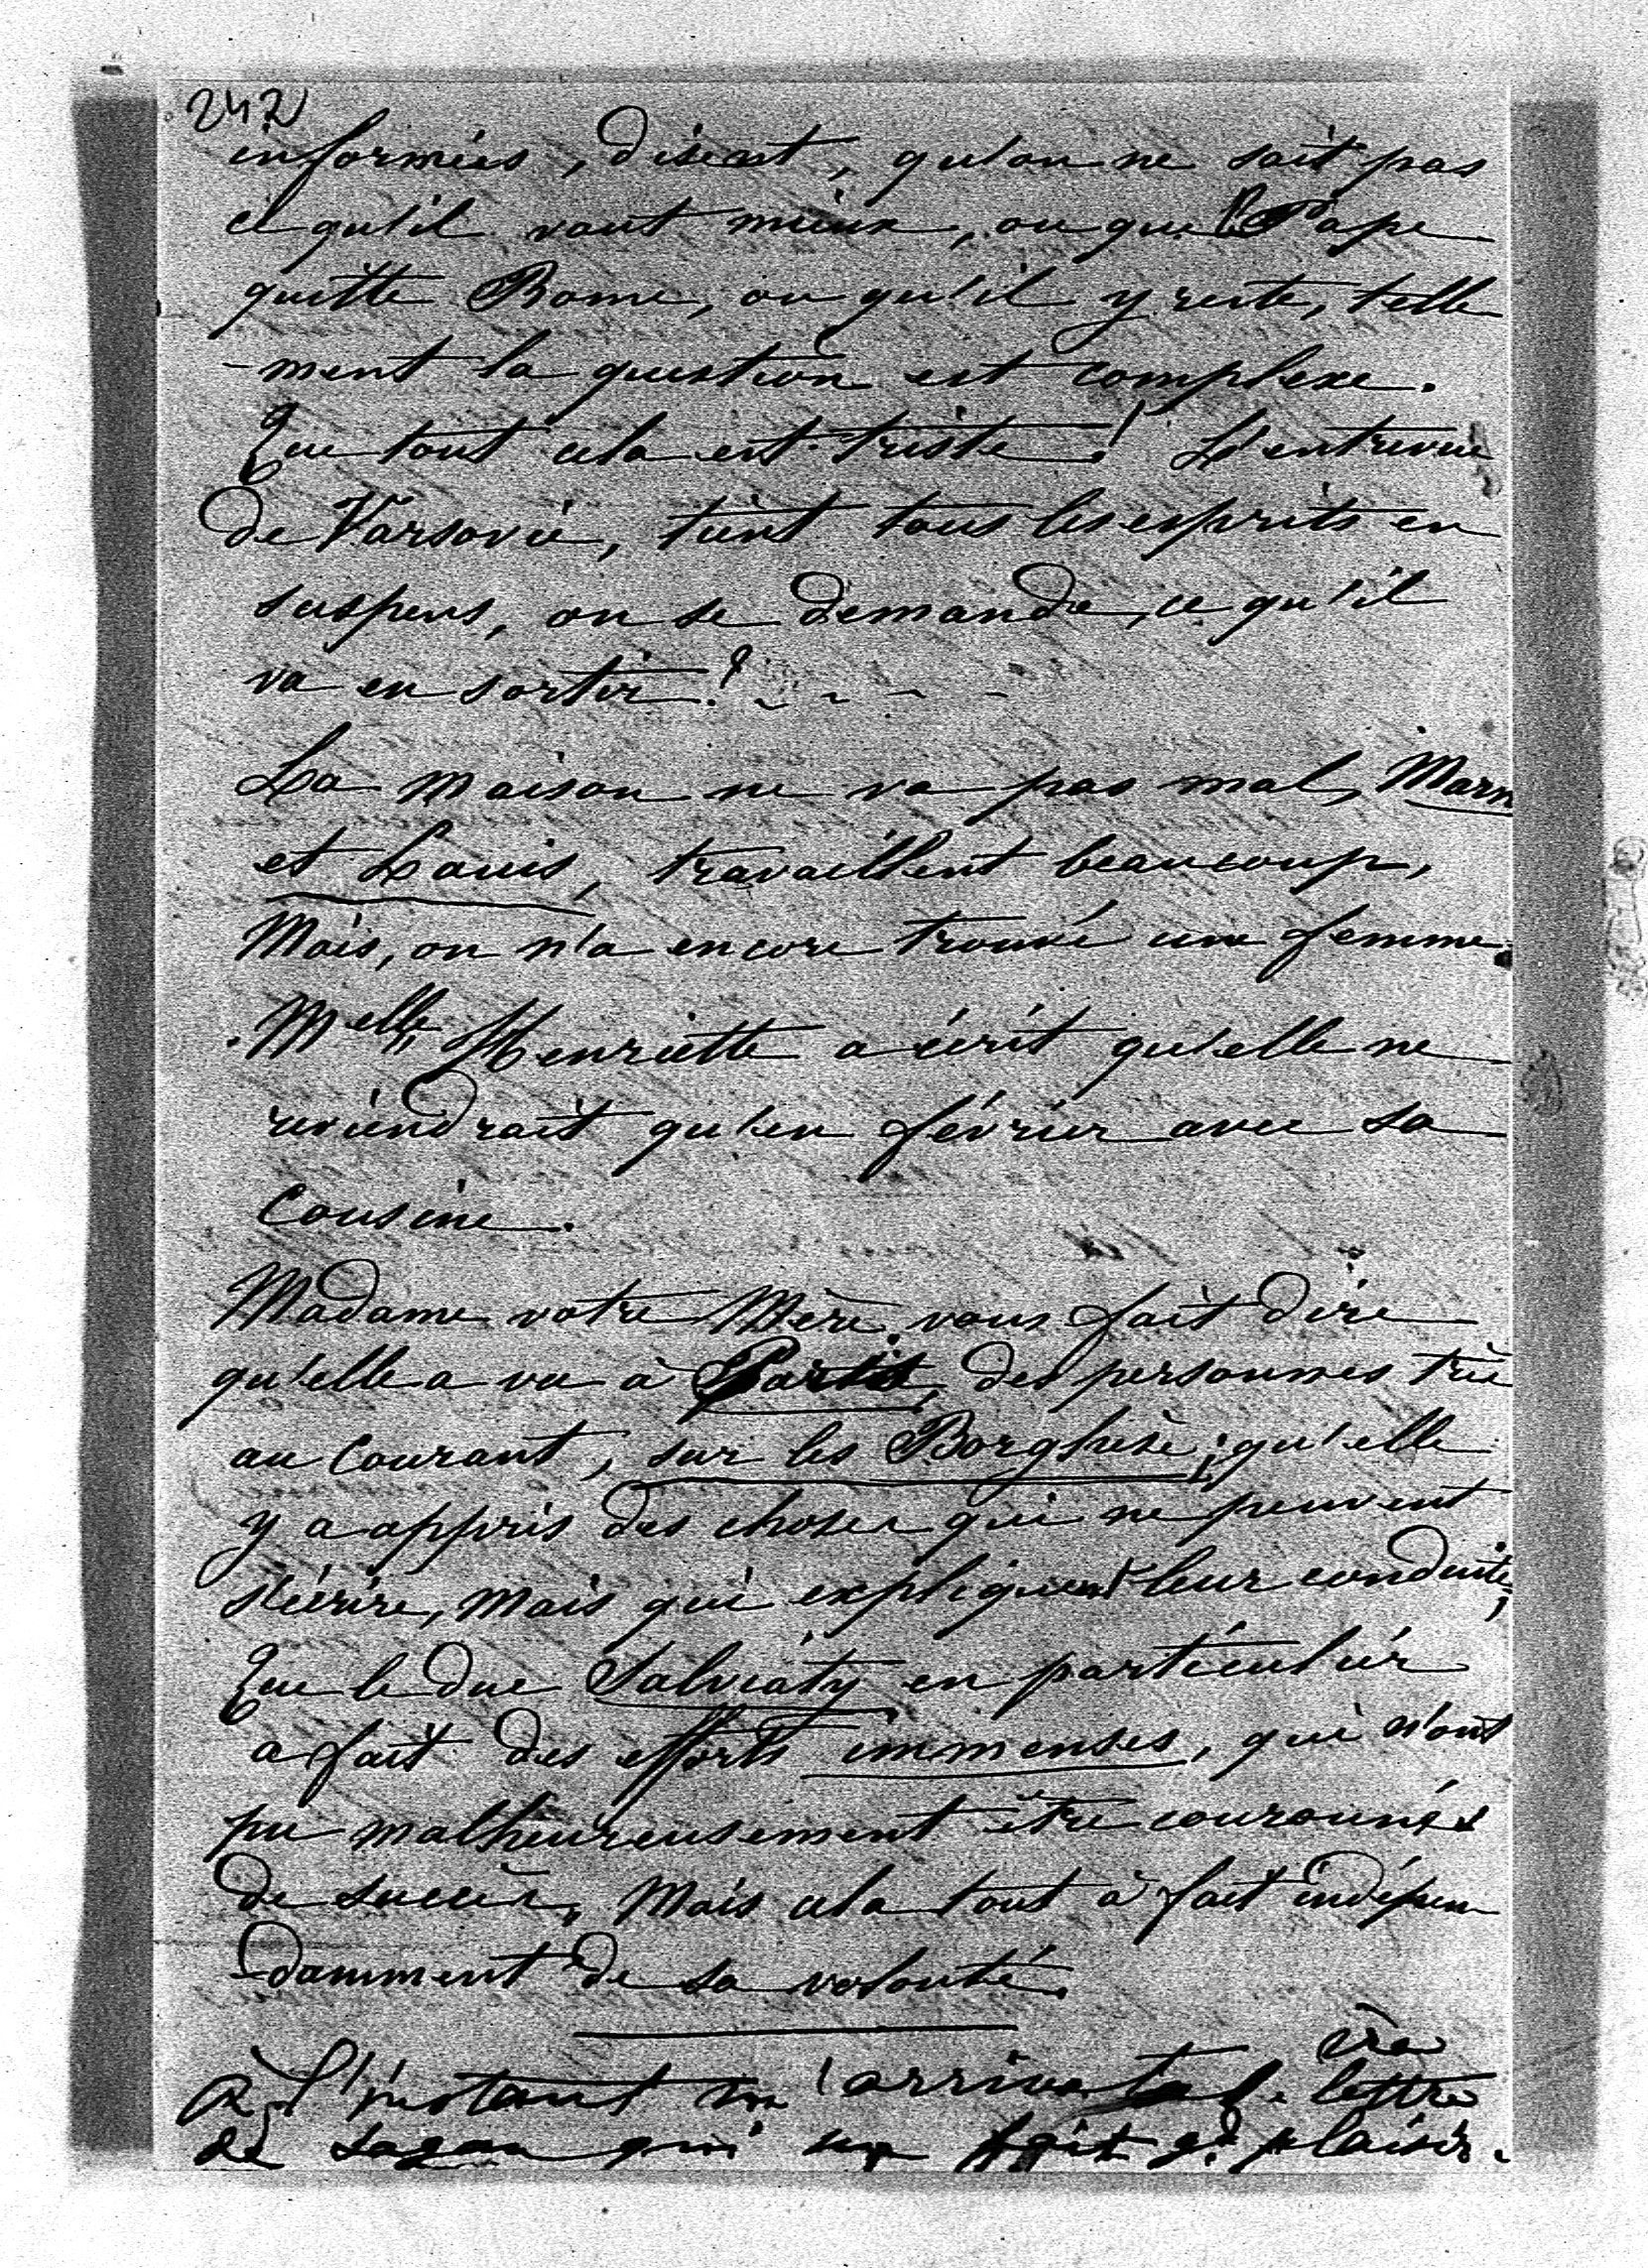 242
informées, disent, qu'on ne sait pas
ce qu'il vaut mieux, ou que le Pape
quitte Rome, ou qu'il y reste, telle
-ment la question est complexe.
Que tout cela est triste! L'entrevue
de Varsovie, tient tous les esprits en
suspens, on se demande, ce qu'il
va en sortir?
La maison ne va pas mal, Marn
et Louis, travaillent beaucoup,
Mais, on n'a encore trouvé une femme.
Melle Henriette a écrit qu'elle ne
reviendrait qu'en février avec sa
Cousine.
Madame votre Mère vous fait dire
qu'elle a vu à Paris, des personnes très
au Courant, sur les Borghèse; qu'elle
y a appris des choses qui ne peuvent
s'écrire, mais qui expliquent leur conduite;
Que le duc Salviaty en particulier
a fait des efforts immenses, qui n'ont
pu malheureusement être couronnés
de succès, Mais cela tout à fait indépen
-damment de sa volonté.
à l'instant m'arrive lettre
de Sagan qui me fait gd plaisir.